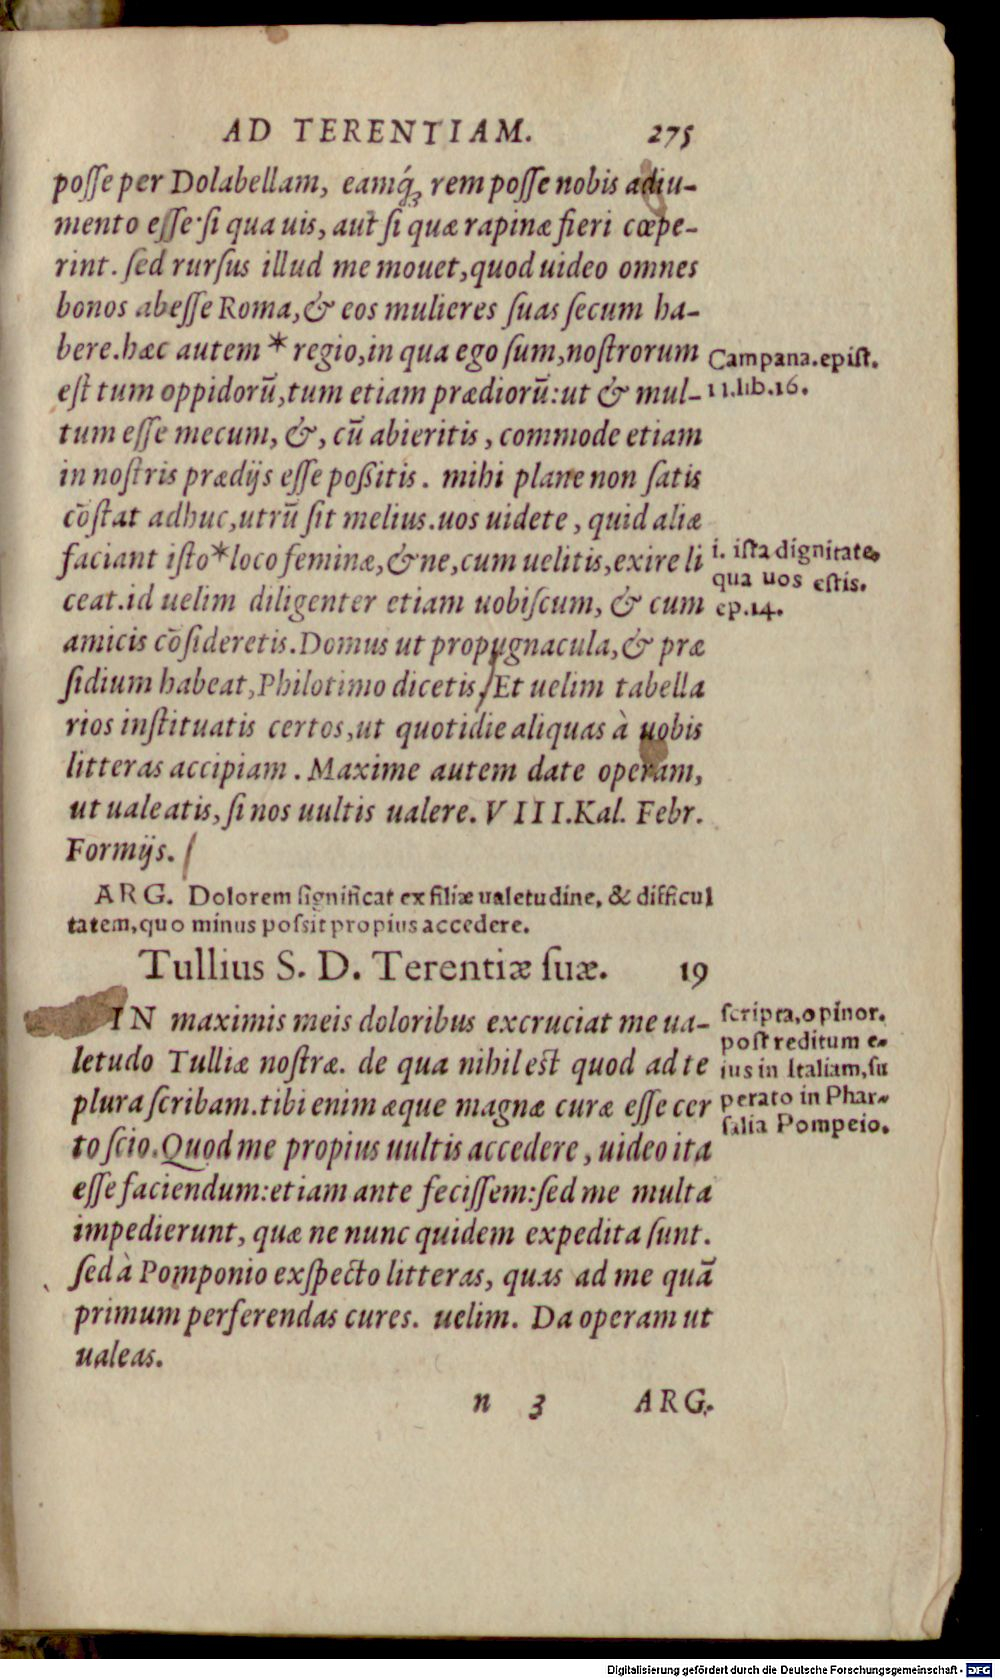 AD TERENTIAM. 275
posse per Dolabellam, eamq́ꝫ rem posse nobis adiu-
mento esse·si qua uis, aut si quæ rapinæ fieri cœpe-
rint. sed rursus illud me mouet,quod uideo omnes
bonos abesse Roma,& eos mulieres suas secum ha-
bere.hæc autem * regio,in qua ego sum,nostrorum
est tum oppidorū,tum etiam prædiorū:ut & mul-
tum esse mecum, &, cū abieritis , commode etiam
in nostris prædijs esse poßitis. mihi plane non satis
cōstat adhuc,utrū sit melius.uos uidete , quid aliæ
faciant isto*loco feminæ,&ne,cum uelitis,exire li
ceat.id uelim diligenter etiam uobiscum, & cum
amicis cōsideretis.Domus ut propugnacula,& præ
sidium habeat,Philotimo dicetis./Et uelim tabella
rios instituatis certos,ut quotidie aliquas à uobis
litteras accipiam . Maxime autem date operam,
ut ualeatis,si nos uultis ualere. VIII.Kal. Febr.
Formijs. /
Campana.epist.
11.lib.16.
i. ista dignitate,
qua uos estis.
ep.14.
ARG. Dolorem significat ex filiæ ualetudine, & difficul
tatem,quo minus possit propius accedere.
Tullius S. D. Terentiæ suæ. 19
IN maximis meis doloribus excruciat me ua-
letudo Tulliæ nostræ. de qua nihil est quod ad te
plura scribam.tibi enim æque magnæ curæ esse cer
to scio.Quod me propius uultis accedere , uideo ita
esse faciendum:etiam ante fecissem:sed me multa
impedierunt, quæ ne nunc quidem expedita sunt.
sed à Pomponio exspecto litteras, quas ad me quā
primum perferendas cures. uelim. Da operam ut
ualeas.
scripta,opinor.
post reditum e-
ius in Italiam,su
perato in Phar-
salia Pompeio.
n 3 ARG.
Digitalisierung gefördert durch die Deutsche Forschungsgemeinschaft - DFG